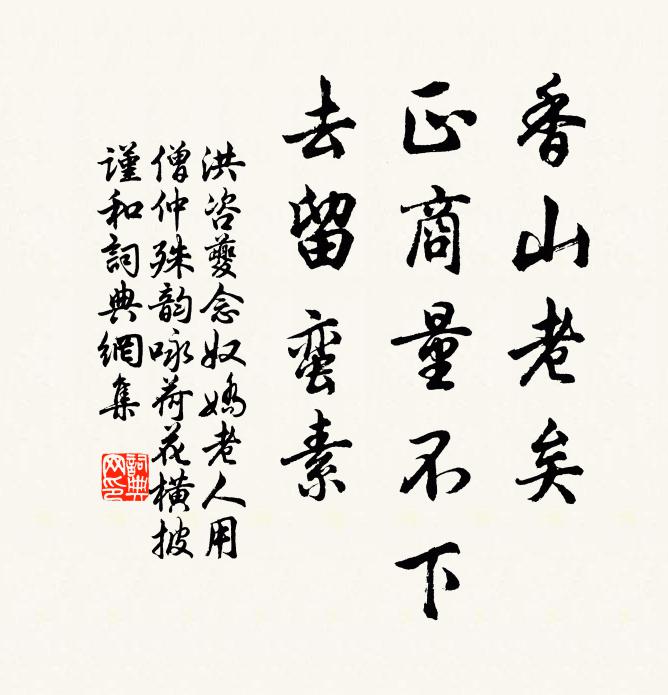 香山老矣
正商量不下
去留蛮素
洪咨夔念奴娇老人用
僧仲殊韵咏荷花横披
谨和词典网集
词典
网印